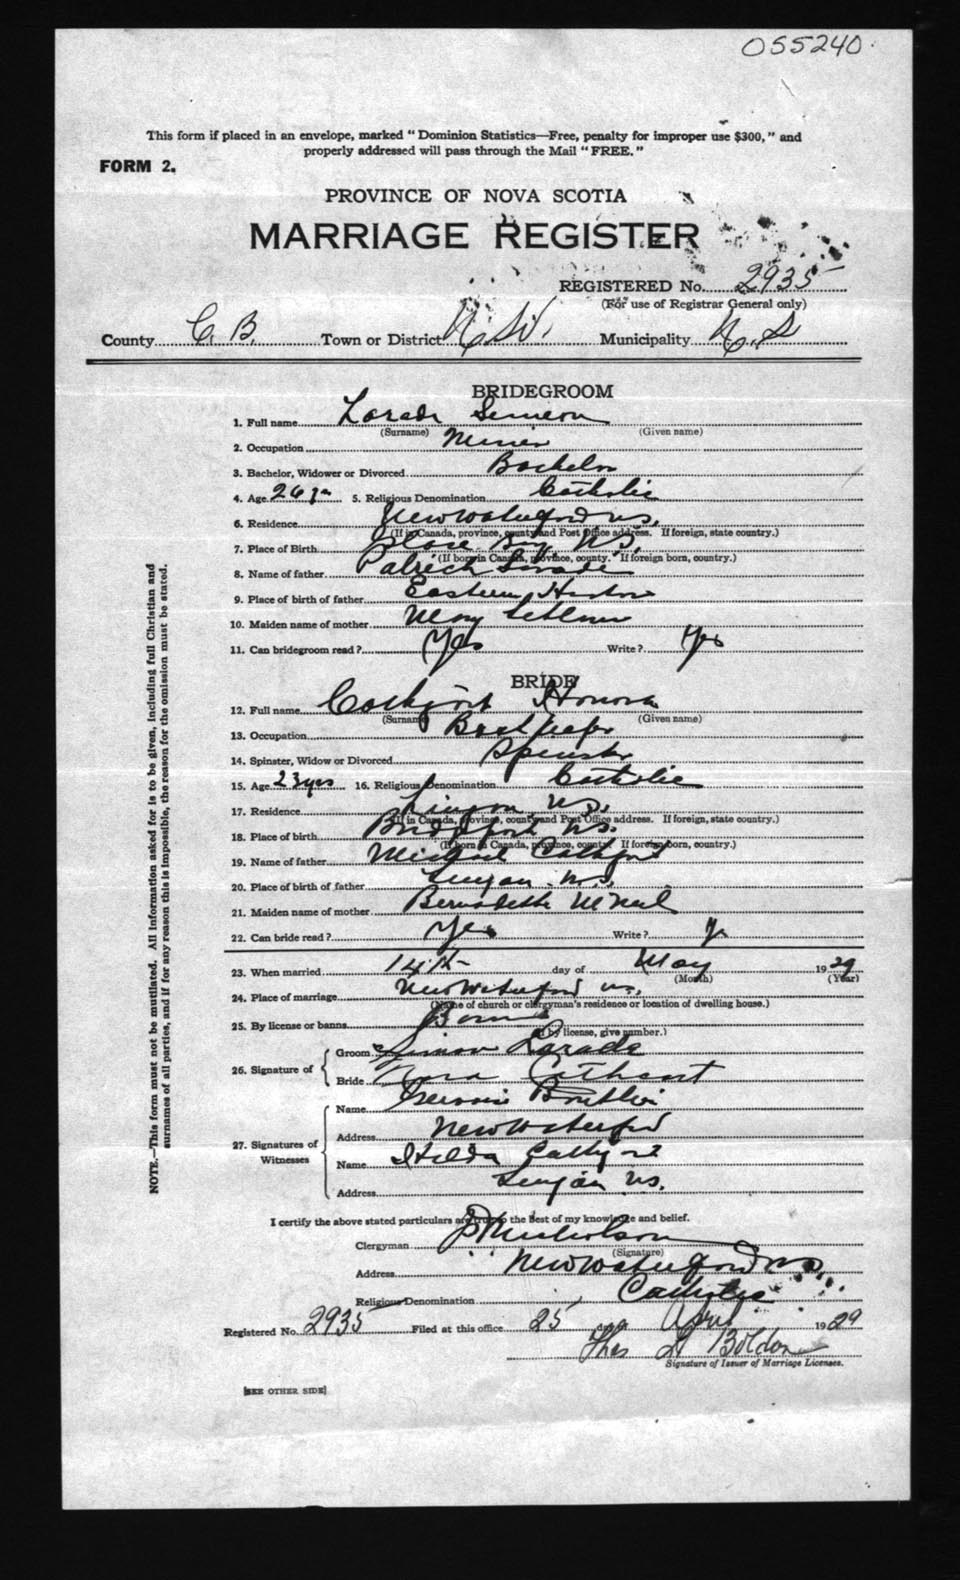 055240
This form if placed in an envelope, marked "Dominion Statistics—Free, penalty for improper use $300," and
properly addressed will pass through the Mail "FREE."
FORM 2.
PROVINCE OF NOVA SCOTIA
MARRIAGE REGISTER
REGISTERED No. 2935
(For use of Registrar General only)
County C. B. Town or District Municipality
BRIDEGROOM
1. Full name Larade Simeon
(Surname) (Given name)
2. Occupation Miner
3. Bachelor, Widower or Divorced Bachelor
4. Age 26 5. Religious Denomination Catholic
6. Residence New Waterford N.S.
(If in Canada, province, county and Post Office address. If foreign, state country.)
7. Place of Birth Glace Bay N.S.
(If born in Canada, province, county. If foreign born, country.)
8. Name of father Patrick Larade
9. Place of birth of father Eastern Harbor
10. Maiden name of mother Mary
11. Can bridegroom read? Yes Write? Yes
BRIDE
12. Full name Honora
(Surname) (Given name)
13. Occupation
14. Spinster, Widow or Divorced Spinster
15. Age 23 yrs 16. Religious Denomination Catholic
17. Residence Lingan N.S.
(If in Canada, province, county and Post Office address. If foreign, state country.)
18. Place of birth Bridgeport N.S.
(If born in Canada, province, county. If foreign born, country.)
19. Name of father Michael
20. Place of birth of father Lingan N.S.
21. Maiden name of mother Bernadette McNeil
22. Can bride read? Yes Write?
23. When married 14th day of May 1929
(Month) (Year)
24. Place of marriage New Waterford N.S.
(Name of church or clergyman's residence or location of dwelling house.)
25. By license or banns Banns
(If by license, give number.)
26. Signature of
Groom Simon Larade
Bride Nora Cathcart
27. Signatures of Witnesses
Name Gervais
Address New Waterford
Name Hilda
Address Lingan N.S.
I certify the above stated particulars are true to the best of my knowledge and belief.
Clergyman
(Signature)
Address New Waterford N.S.
Religious Denomination Catholic
Registered No. 2935 Filed at this office 25 day April 1929
Thos
Signature of Issuer of Marriage Licenses.
[SEE OTHER SIDE]
NOTE.—This form must not be mutilated. All information asked for is to be given, including full Christian and
surnames of all parties, and if for any reason this is impossible, the reason for the omission must be stated.